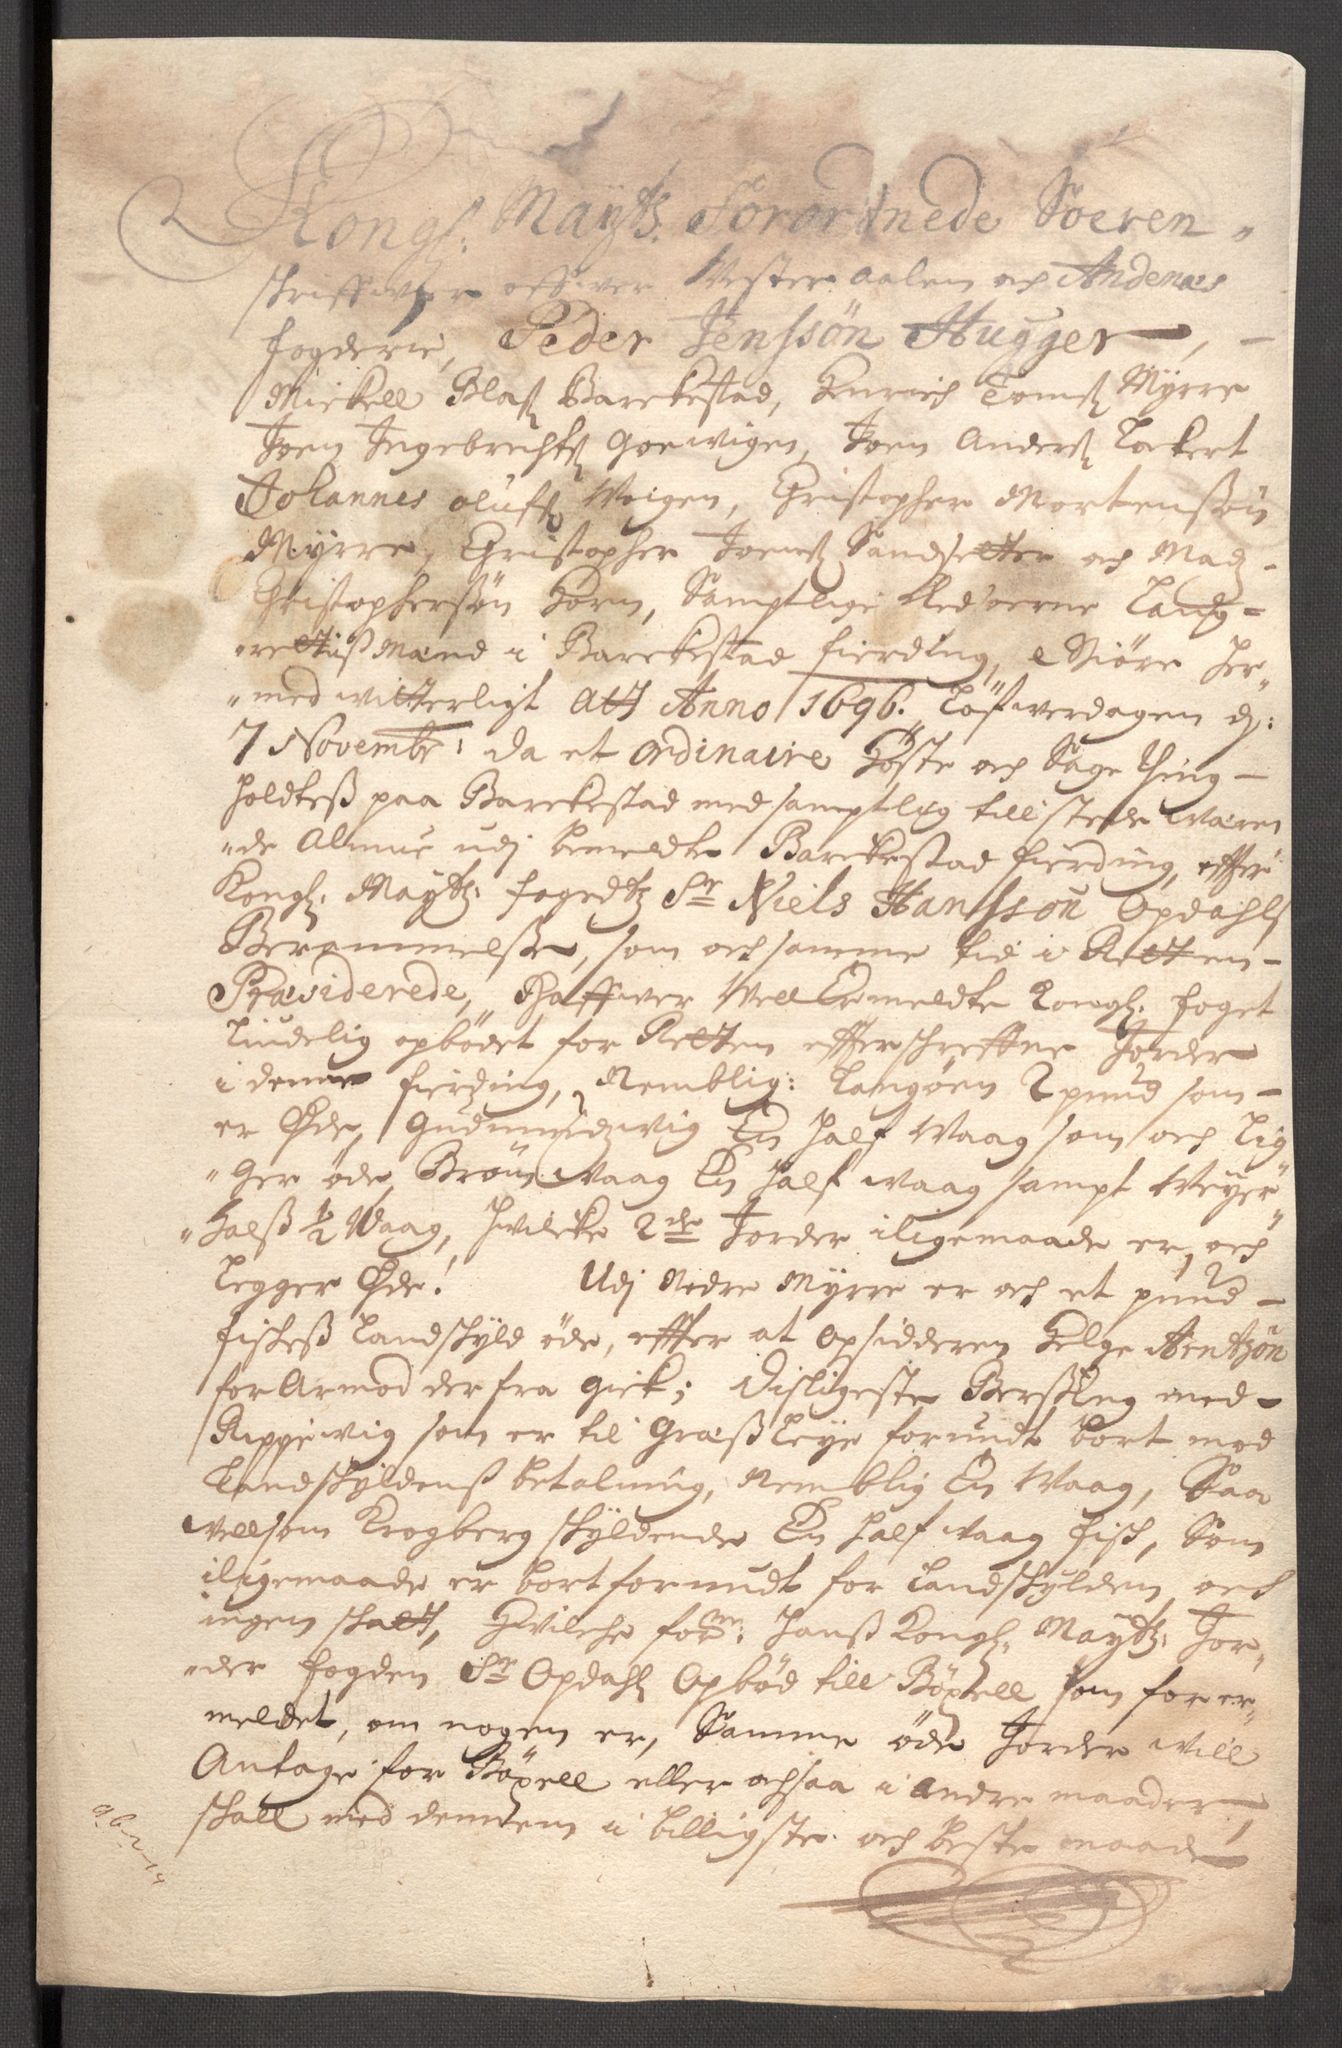 Kongl: Mayts: Forordnede Soeren-
schriffwer offwer Westeraalen och Andenæs
fogderie, Peder Jenssøn Hugger, -
Mickell Olaß Barckestad, Henrich Tomeß Myrre
Joen Ingebrechtß Goewigen, Joen Anderß Lockert
Johannes Olufß Weigen, Christopher Mortenssøn
Myrre, Christopher Joenß Sandsetter och Madz
Christopherssøn Horn, Samptlige Edsoerne Laug-
rettißmænd i Barckestad fierding, Giøre her-
med witterligt Att Anno 1696. Løfwerdagen d:
7 Novembr: da et Ordinaire Høste och Sage thing -
holdteß paa Barckestad med samptlig till stede væren
de Almue udj bemeldte Barckestad fierding, effter
Kongl: Maytz: fogedtz Sr Niels Hanssøn Opdahlß
Berammelse, som och samme tid i Retten -
Præsiderede, Haffwer Well Ermeldte Kongl: foget
Liudelig opbødet for Retten effterschreffne Jorder
i denne fierding, Nemblig: Langøen 2 pund som -
er Øde, Gudmundzwig En half Waag som och lig
ger øde, Brøn Waag En half waag sampt Weyer
Halß ½ Waag, hwilcke 2de Jorder iligemaade er, och
legger Øde! Udj Nedre Myrre er och et pund -
fiskeß Landschyld øde, effter at opsidderen Helge Arntzøn
for Armod der fra gick; Disligeste Gerßking med -
Kippewig som er til Græßleye forundt bort mod
Landschyldenß betaling, Nemblig En Waag, Saa
vellsom Krogberg schyldende En half waag fisk, Som
iligemaade er bortforundt for Landschylden och
ingen schatt, Hwilche forme: hanß Kongl: Maytz: Jor-
der fogden Sr Opdahl Opbød till Bøxell som for er-
meldet, om nogen er, Samme øde Jorder will
Antage for Bøxell eller ochsaa i andre maader,
schall med dennem i billigste och beste maade